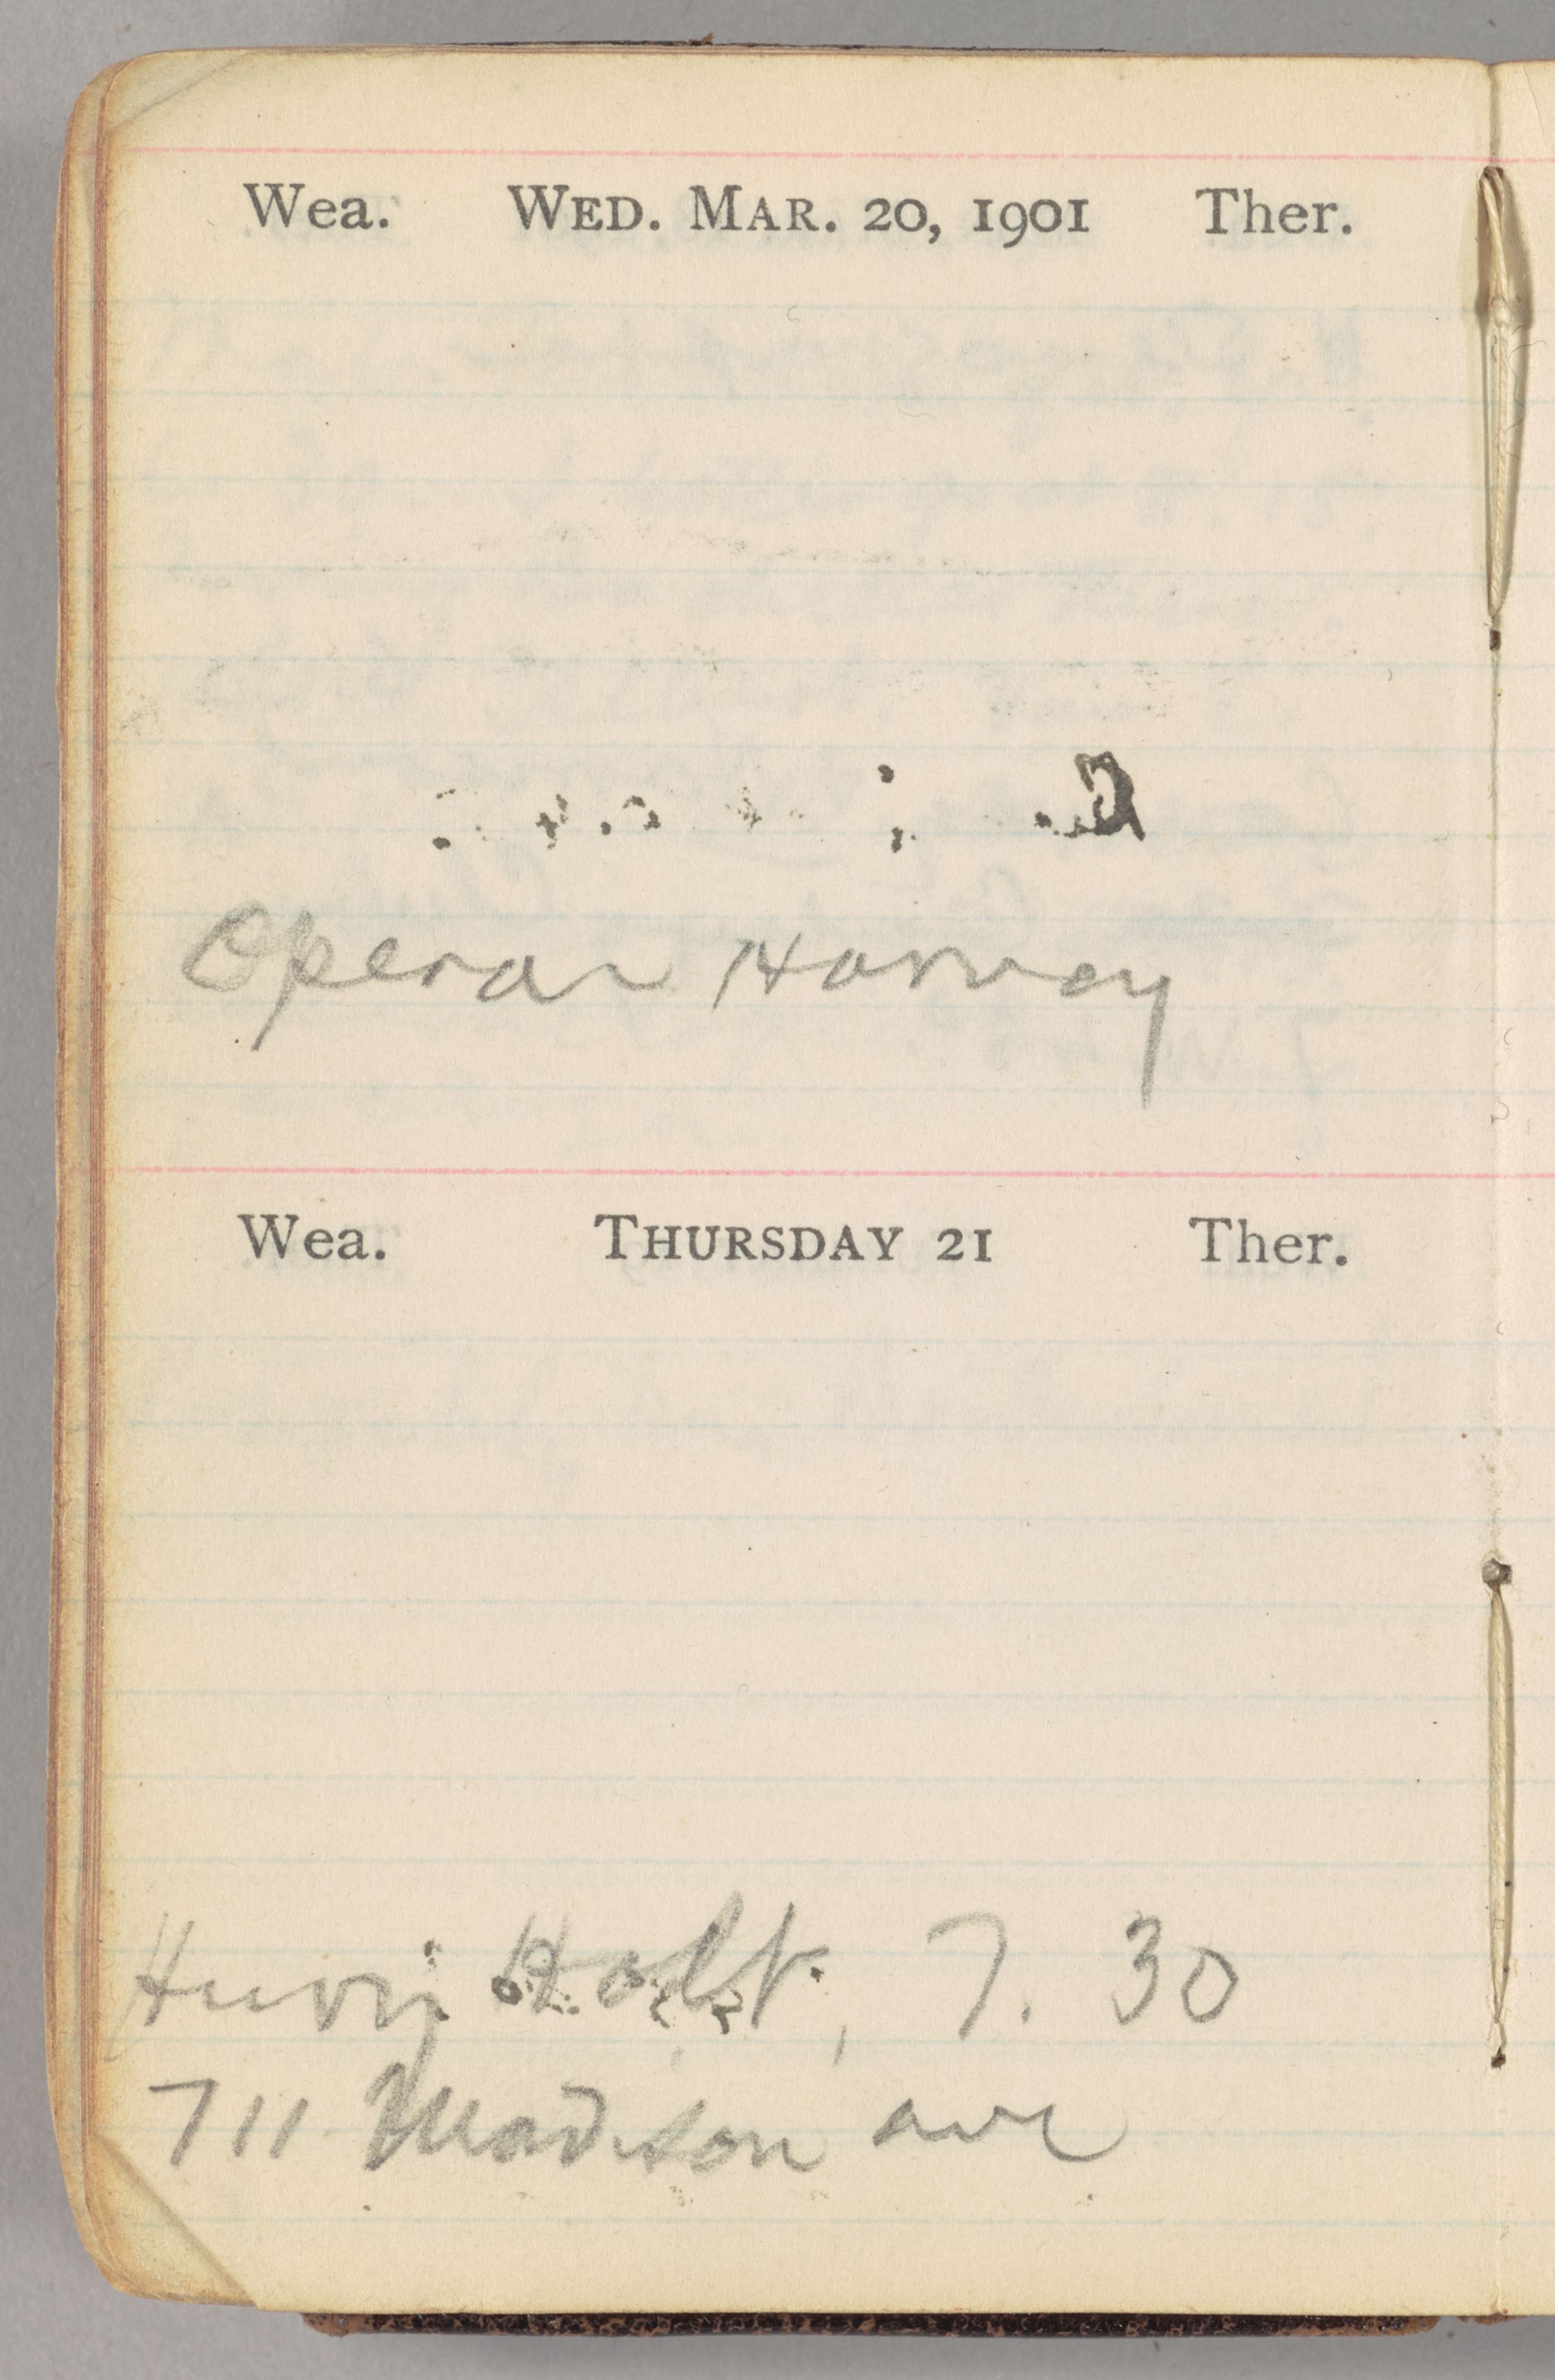 Wea. WED. MAR. 20, 1901 Ther.
Opera Harvey
Wea. THURSDAY 21 Ther.
Henry Holt, 7. 30
711 Madison ave